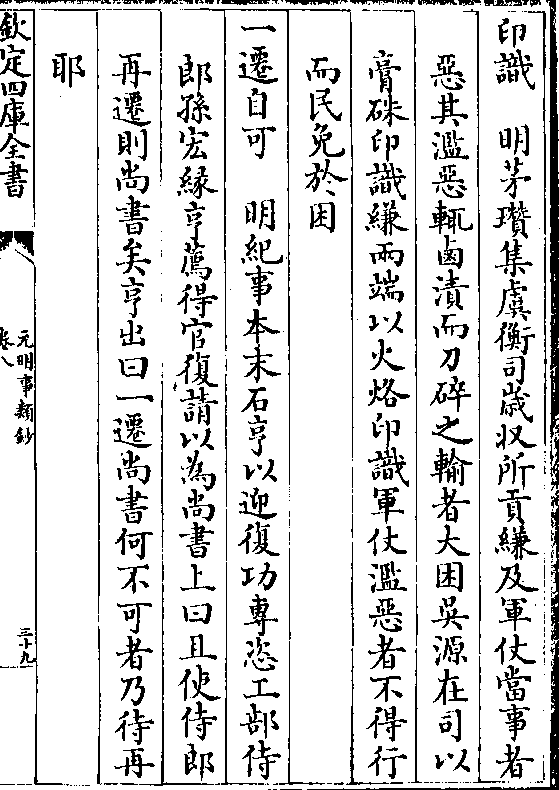 印識　明茅瓚集虞衡司歳收所貢縑及軍仗當事者
惡其濫惡輒鹵漬而刀碎之輸者大困吳源在司以
膏硃印識縑兩端以火烙印識軍仗濫惡者不得行
而民免於困
一遷自可　明紀事本末石亨以迎復功專恣工部侍
郎孫宏緣亨薦得官復請以為尚書上曰且使侍郎
再遷則尚書矣亨出曰一遷尚書何不可者乃待再
耶
欽定四庫全書
元明事類鈔
卷八
三十九